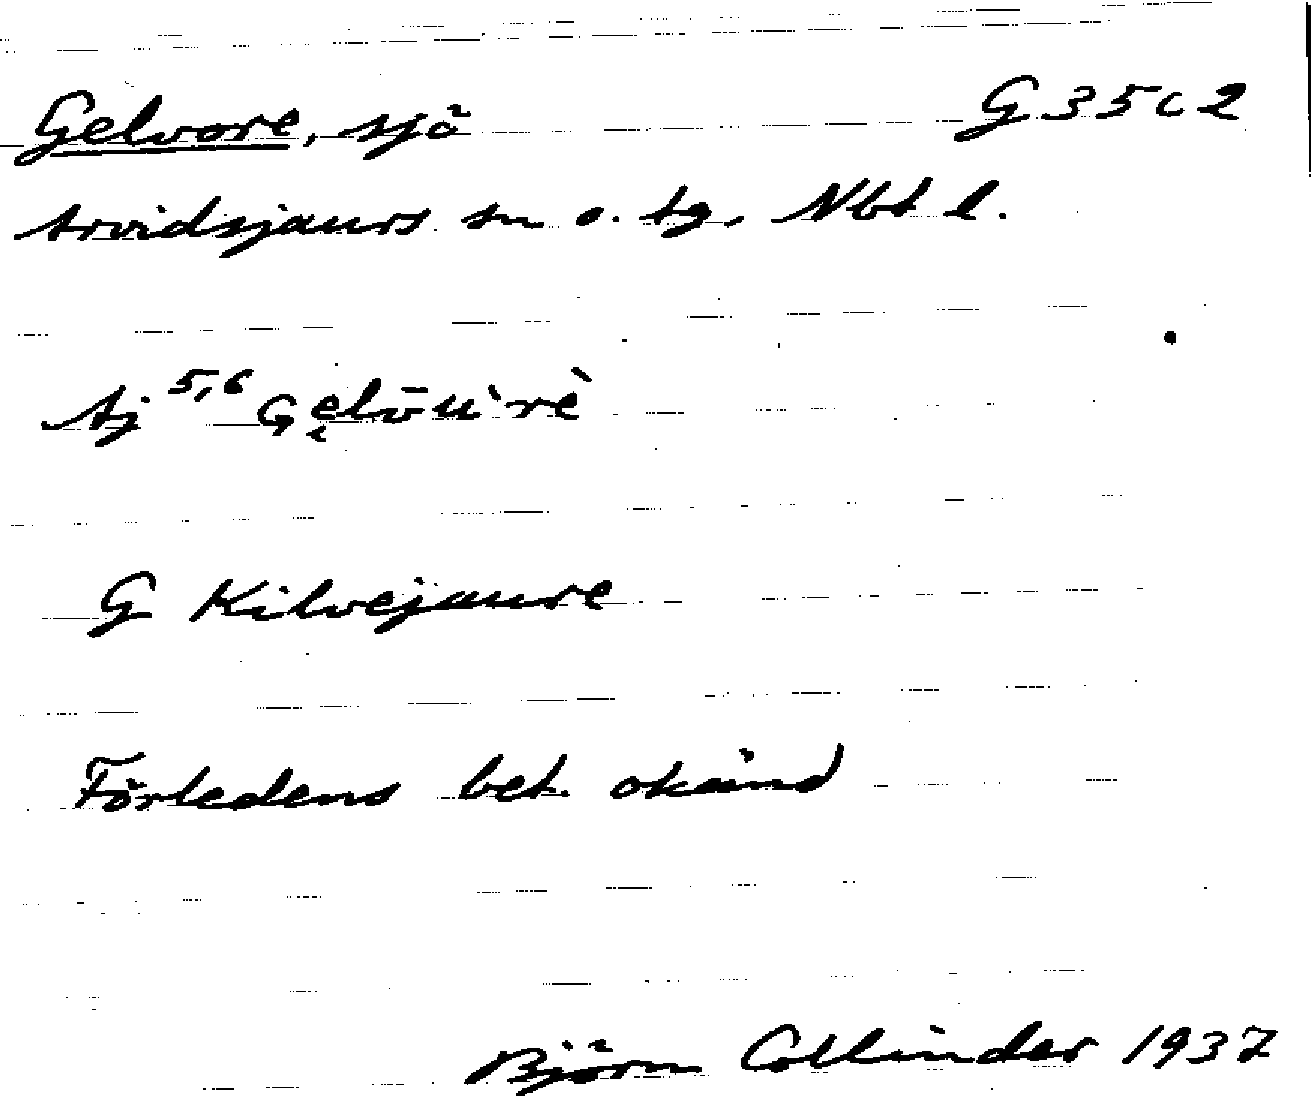 Gelvore, sjö G 35 c 2
Arvidsjaurs sn o. tg. Nbt l.
Aj 5,6 Gęlv̄u̇̀rè
G Kilvejaure
Förledens bet. okänd
Björn Collinder 1937